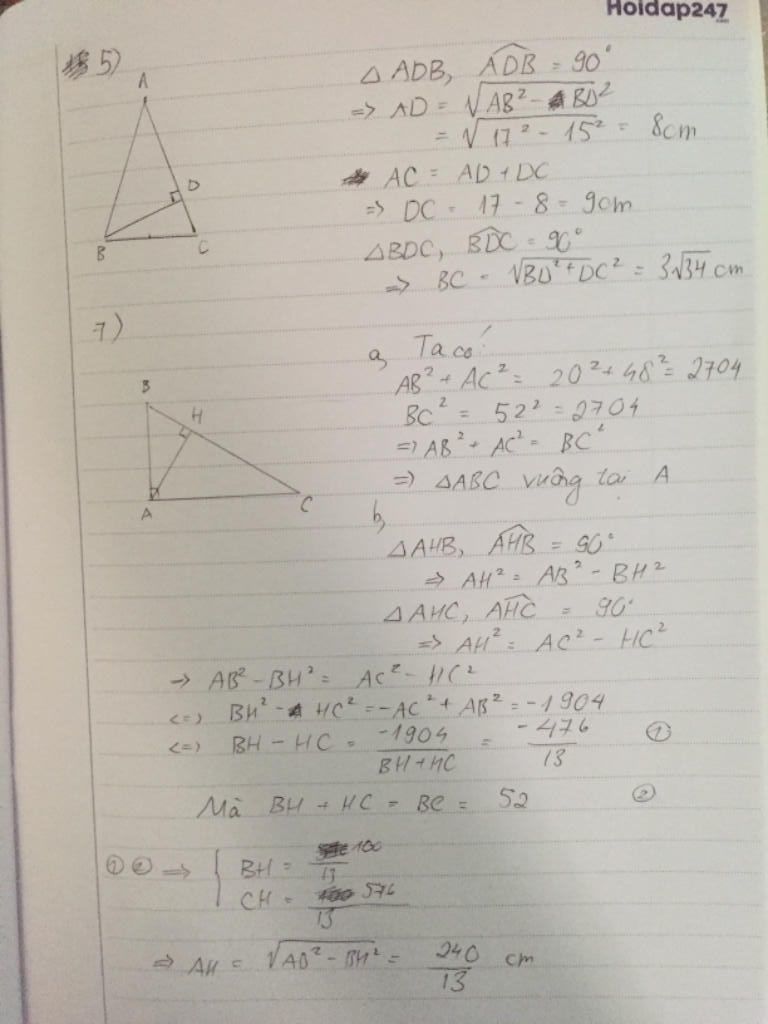 Hoidap247
.com
5)
A
D
B
C
△ ADB, ADB = 90°
=> AD = √AB² - BD²
= √17² - 15² = 8cm
AC = AD + DC
=> DC = 17 - 8 = 9cm
△BDC, BDC = 90°
=> BC = √BD² + DC² = 3√34 cm
7)
B
H
A
C
a, Ta có:
AB² + AC² = 20² + 48² = 2704
BC² = 52² = 2704
=> AB² + AC² = BC²
=> △ABC vuông tại A
b,
△AHB, AHB = 90°
=> AH² = AB² - BH²
△AHC, AHC = 90°
=> AH² = AC² - HC²
→ AB² - BH² = AC² - HC²
<=> BH² - HC² = -AC² + AB² = -1904
<=> BH - HC = -1904 / BH+HC = -476 / 13 ①
Mà BH + HC = BC = 52 ②
① ② => { BH = 100 / 13
CH = 576 / 13
=> AH = √AB² - BH² = 240 / 13 cm